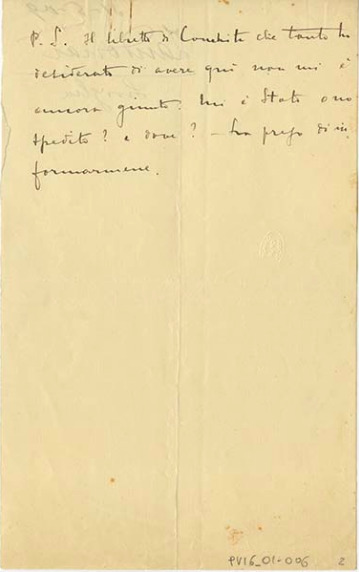 P. S. Il libretto di Conchita che tanto ho
desiderato di avere qui non mi è
ancora giunto. Mi è stato o no
spedito? e dove? – La prego di in
formarmene.
PV16_01-006 2